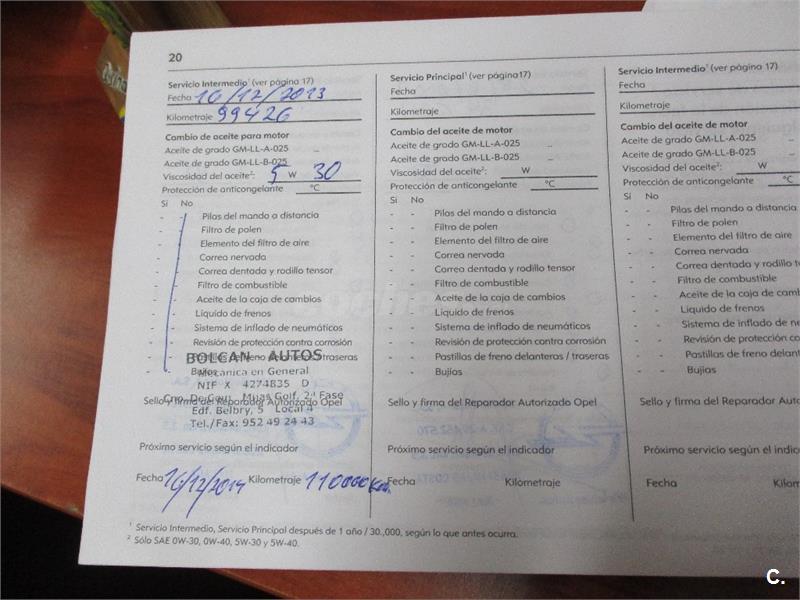 20
Servicio Intermedio¹ (ver página 17)
Fecha 16/12/2013
Kilometraje 99426
Cambio de aceite para motor
Aceite de grado GM-LL-A-025 -
Aceite de grado GM-LL-B-025
Viscosidad del aceite²: 5 W 30
Protección de anticongelante °C
Sí No
- - Pilas del mando a distancia
- - Filtro de polen
- - Elemento del filtro de aire
- - Correa nervada
- - Correa dentada y rodillo tensor
- - Filtro de combustible
- - Aceite de la caja de cambios
- - Líquido de frenos
- - Sistema de inflado de neumáticos
- - Revisión de protección contra corrosión
- - Pastillas de freno delanteras / traseras
- - Bujías
BOLCAN AUTOS
Mecánica en General
NIF X 4274835 D
Sello y firma del Reparador Autorizado Opel
Mijas Golf, 2ª Fase
Edf. Belbry, 5 Local 4
Tel./Fax: 952 49 24 43
Próximo servicio según el indicador
Fecha 16/12/2014 Kilometraje 110000 Km.
Servicio Principal¹ (ver página 17)
Fecha
Kilometraje
Cambio del aceite de motor
Aceite de grado GM-LL-A-025 -
Aceite de grado GM-LL-B-025 -
Viscosidad del aceite²: W
Protección de anticongelante °C
Sí No
- - Pilas del mando a distancia
- - Filtro de polen
- - Elemento del filtro de aire
- - Correa nervada
- - Correa dentada y rodillo tensor
- - Filtro de combustible
- - Aceite de la caja de cambios
- - Líquido de frenos
- - Sistema de inflado de neumáticos
- - Revisión de protección contra corrosión
- - Pastillas de freno delanteras / traseras
- - Bujías
Sello y firma del Reparador Autorizado Opel
Próximo servicio según el indicador
Fecha Kilometraje
Servicio Intermedio¹ (ver página 17)
Fecha
Kilometraje
Cambio del aceite de motor
Aceite de grado GM-LL-A-025 -
Aceite de grado GM-LL-B-025 -
Viscosidad del aceite²: W
Protección de anticongelante °C
Sí No
- - Pilas del mando a distancia
- - Filtro de polen
- - Elemento del filtro de aire
- - Correa nervada
- - Correa dentada y rodillo t
- - Filtro de combustible
- - Aceite de la caja de camb
- - Líquido de frenos
- - Sistema de inflado de ne
- - Revisión de protección c
- - Pastillas de freno delant
- - Bujías
Sello y firma del Reparador Auto
Próximo servicio según el indic
Fecha Kilom
¹ Servicio Intermedio, Servicio Principal después de 1 año / 30.,000, según lo que antes ocurra.
² Sólo SAE 0W-30, 0W-40, 5W-30 y 5W-40.
C.